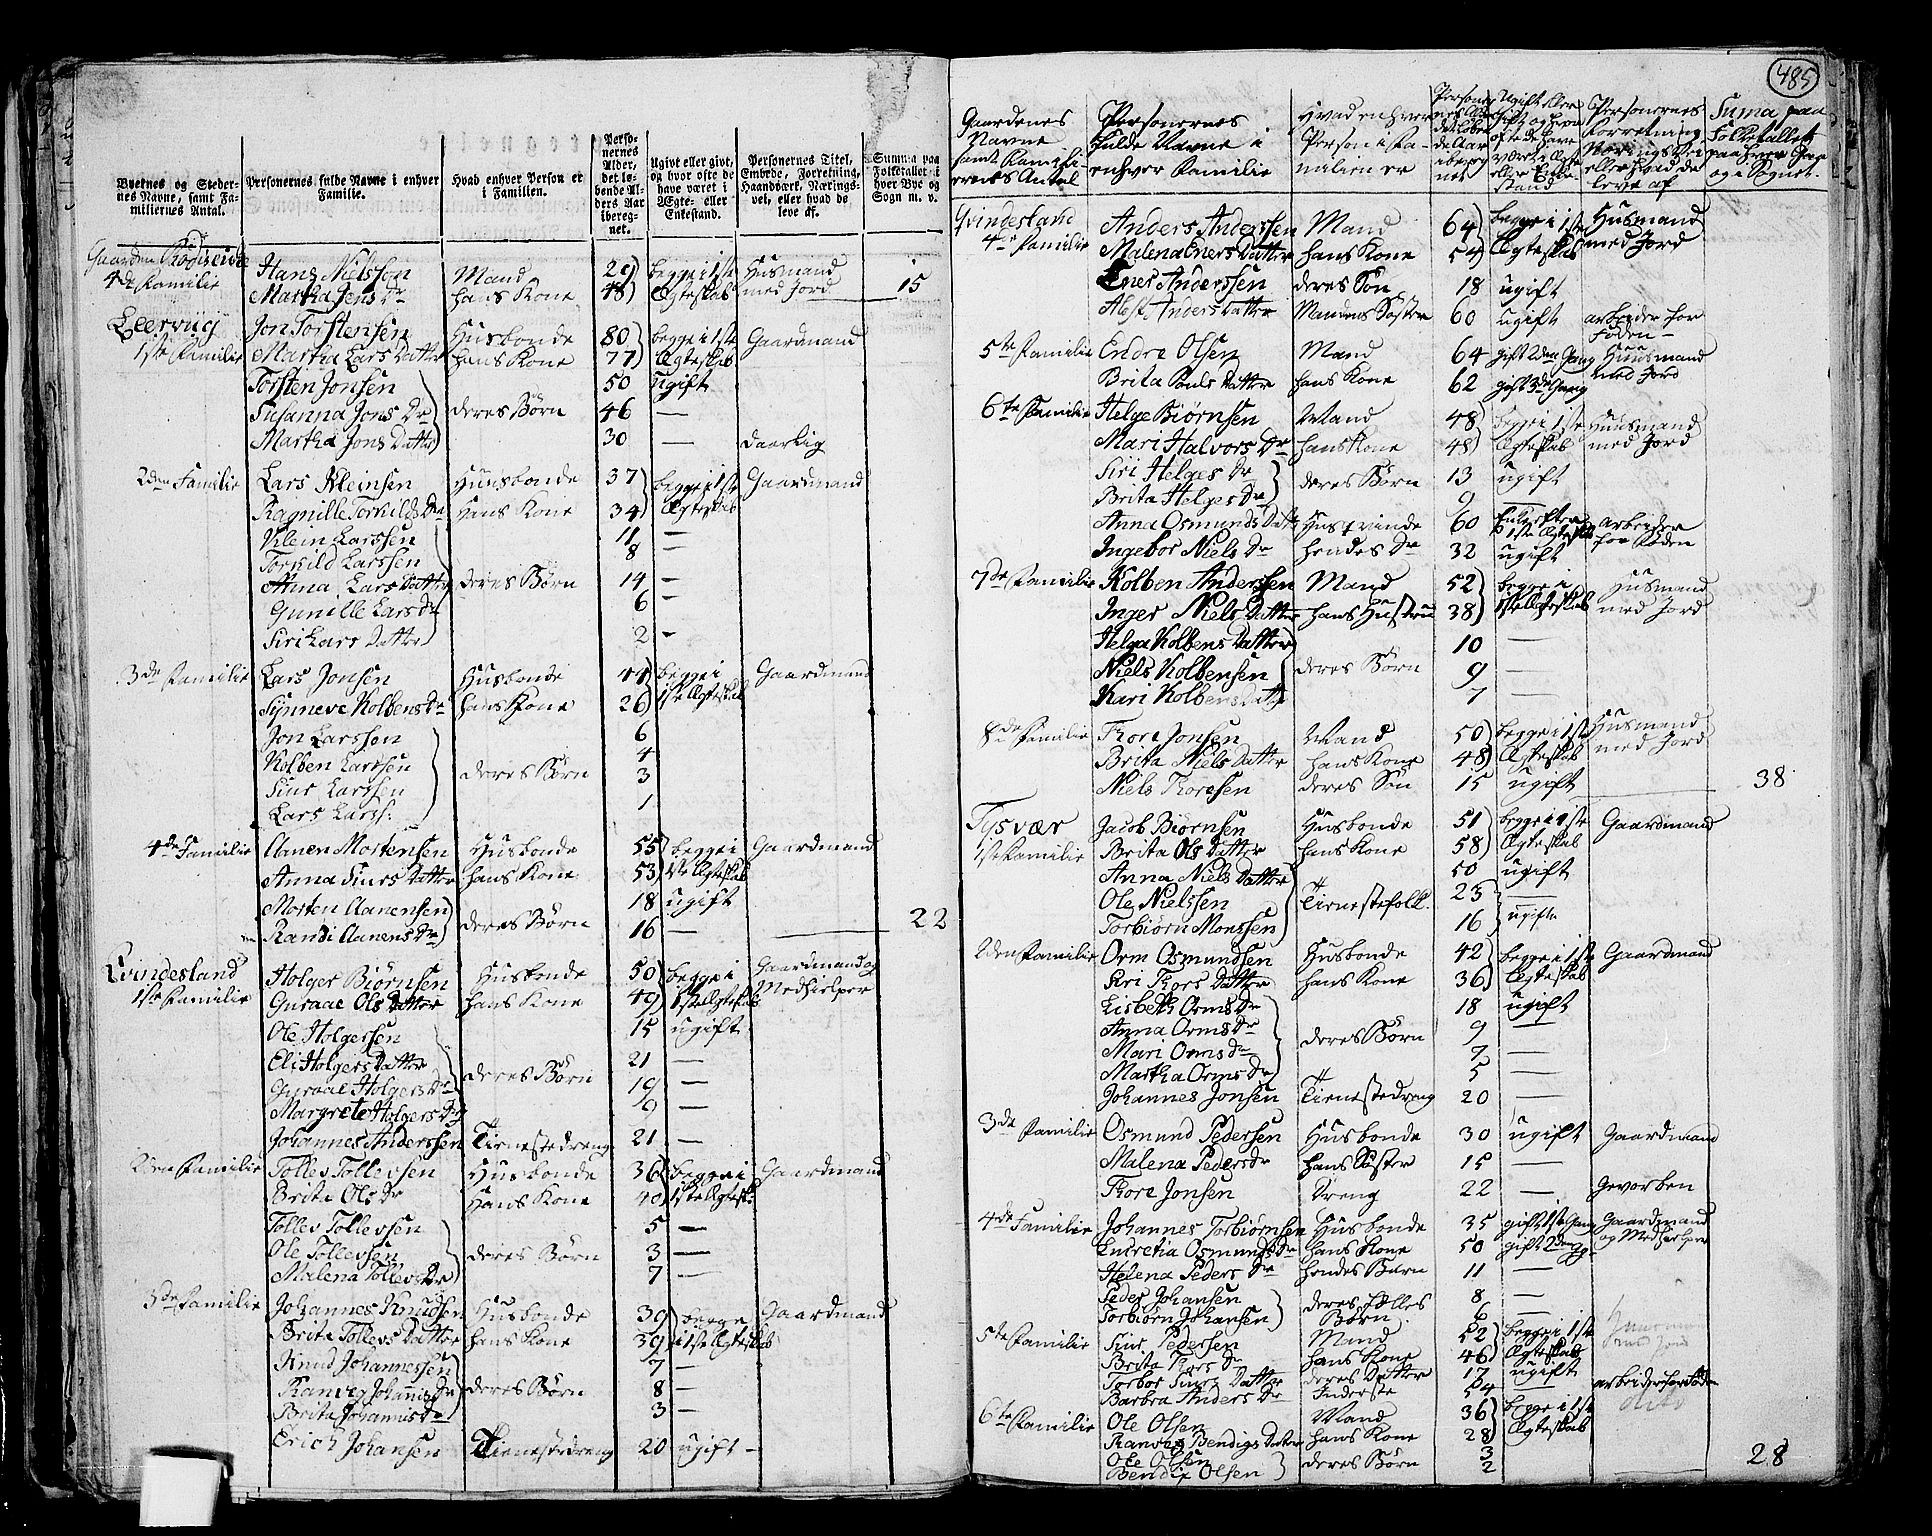 485
Byernes og Stedernes Navne, samt Familiernes Antal.
Personernes fulde Navne i enhver Familie.
Hvad enhver Person er i Familien.
Personernes Alder, det løbende Alders Aar iberegnet.
Ugivt eller givt, og hvor ofte de have været i Ægte- eller Enkestand.
Personernes Titel, Embede, Forretning, Haandværk, Næringsvei, eller hvad de leve af.
Summa paa Folketallet i hver Bye og Sogn m. v.
Gaarden
4de Familie Hans Nielsson Mand 29 begge i 1ste Huusmand
Martha Jens Dr hans Kone 48 Ægteskab med Jord 15
Leervüg Jon Torstensen Husbonde 80 begge i 1ste Gaardmand
1ste Familie Martha Lars Datter hans Kone 77 Ægteskab
Torsten Jonsen 50 ugift
Susanna Jons Dr deres Børn 46 —
Martha Jons Datter 30 — daarlig
2den Familie Lars Kleinsen Huusbonde 37 begge i 1ste Gaardmand
Ragnille Torkilds Dr Hans Kone 34 Ægteskab
Klein Larssen 11 —
Torkild Larssen 8
Anna Lars Datter deres Børn 14 —
Gunille Lars Dr 6 —
Siri Lars Datter 2 —
3de Familie Lars Jonsen Husbonde 44 begge i Gaardmand
Synneve Kolbens Dr hans Kone 26 1ste Ægteskab
Jon Larssen 6
Kolben Larssen deres Børn 4
Siur Larssen 3
Lars Larss: 1
4de Familie Aanen Mortensen Husbonde 55 begge i Gaardmand
Anna Siurs Datter hans Kone 53 1ste Ægteskab
Morten Aanensen deres Børn 18 ugift
Randi Aanens Dr 16 — 22
Qvindesland Holger Biørnsen Husbonde 50 begge i Gaardmand og
1ste Familie Guraae Ols Datter hans Kone 49 1ste Ægteskab Medhielper
Ole Holgersen 15 ugift
Eli Holgers Datter deres Børn 21 —
Guraae Holgers Dr 19 —
Margrete Holgers Dr 9 —
Johannes Anderssen Tienestedreng 21 —
2den Familie Tollev Tollevsen Husbonde 36 begge i Gaardmand
Brita Ols Dr Hans Kone 40 1ste Ægteskab
Tollev Tollevsen 5 —
Ole Tollevsen deres Børn 3 —
Malena Tollevs Dr 7 —
3de Familie Johannes Knudsen Husbonde 39 begge Gaardmand
Brita Tollevs Datter hans Kone 39 i 1ste Ægteskab
Knud Johannessen 7 —
Ranveg Johannis Dr deres Børn 8 —
Brita Johannis Dr 3 —
Erich Johansen Tienestedreng 20 ugift —
Gaardenes Navne samt Familiernes Antal
Personernes fulde Navne i enhver Familie
Hvad enhver Person i Familien er
Personernes Alder det løbende Aar iberegnet
Ugift eller Gift og hvor ofte de have været i Ægte eller Enkestand
Personernes Forretning Næringsvei eller hvad de leve af
Suma paa Folketallet paa hver Gaar og i Sognet.
Qvindesland Anders Anderssen Mand 64 begge i 1ste Husmand
4de Familie Malena Eners Datter hans Kone 54 Ægteskab med Jord
Ener Anderssen deres Søn 18 ugift
Anders Datter Mandens Søster 60 ugift arbeider for Føden —
5te Familie Endre Olsen Mand 64 gift 2den Gang Huusmand
Brita Pouls Datter hans Kone 62 gift 3de Gang med Jord
6te Familie Helge Biørnsen Mand 48 begge i 1ste Huusmand
Mari Halvors Dr hans Kone 48 Ægteskab med Jord
Siri Helges Dr deres Børn 13 ugift
Brita Helges Dr 9
Anna Osmunds Datter Husqvinde 60 Enke efter 1ste Ægteskab arbeider
Ingebor Niels Dr hendes Dr 32 ugift for Føden
7de Familie Kolben Anderssen Mand 52 begge i Husmand
Inger Niels Datter hans Hustru 38 1ste Ægteskab med Jord
Helga Kolbens Datter 10 —
Niels Kolbensen deres Børn 9 —
Kari Kolbens Datter 7 —
8de Familie Thore Jonsen Mand 50 begge i 1ste Husmand
Brita Niels Datter hans Kone 48 Ægteskab med Jord
Niels Thoresen deres Søn 15 ugift 38
Tysvær Jacob Biørnsen Husbonde 51 begge i 1ste Gaardmand
1ste Familie Brita Ols Datter hans Kone 58 Ægteskab
Anna Niels Datter 50 ugift
Ole Nielssen Tienestefolk. 23 —
Torbiørn Monssen 16 ugifte
2den Familie Orm Osmundsen Husbonde 42 begge i 1ste Gaardmand
Siri Thors Datter hans Kone 36 Ægteskab
Lisbeth Orms Dr 18 ugift
Anna Orms Dr deres Børn 9 —
Mari Orms Dr 7 —
Martha Orms Dr 5 —
Johannes Jonsen Tienestedreng 20 —
3de Familie Osmund Pedersen Husbonde 30 ugift Gaardmand
Malena Peders Dr hans Søster 15 —
Thore Jonsen Dreng 22 — Gevorben
4de Familie Johannes Torbiørnsen Husbonde 35 gift 1ste Gang Gaardmand
Lucretia Osmunds Dr hans Kone 50 gift 2den Gg og Medhielper
Helena Peders Dr hendes Barn 11 —
Peder Johansen deres fælles 8 —
Torbiørn Johansen Børn. 6 —
5te Familie Siur Pedersen Mand 52 begge i 1ste Huusmand
Brita Thors Dr hans Kone 46 Ægteskab med Jord
Torbor Siurs Datter deres Datter 17 ugift
Barbra Anders Dr Inderste 54 — arbeider for Føden
6te Familie Ole Olsen Mand 36 begge i 1ste dito
Ranveg Bendigs Datter hans Kone 28 Ægteskab
Ole Olsen deres Børn 3
Bendix Olsen 2 28